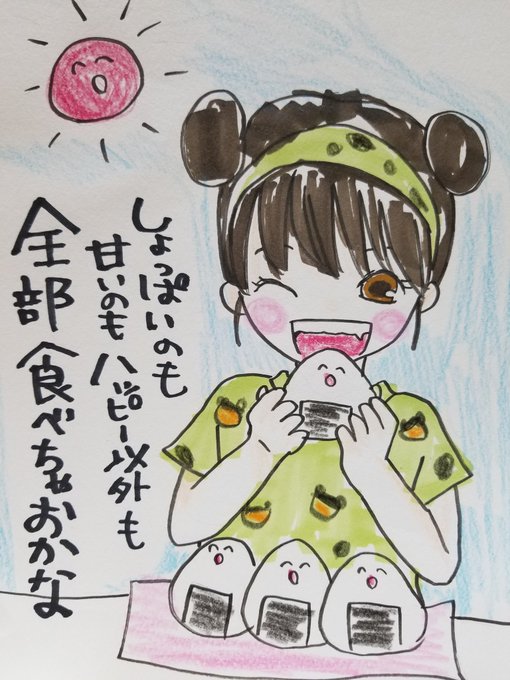 しょっぱいのも
甘いのもハッピー以外も
全部食べちゃおかな